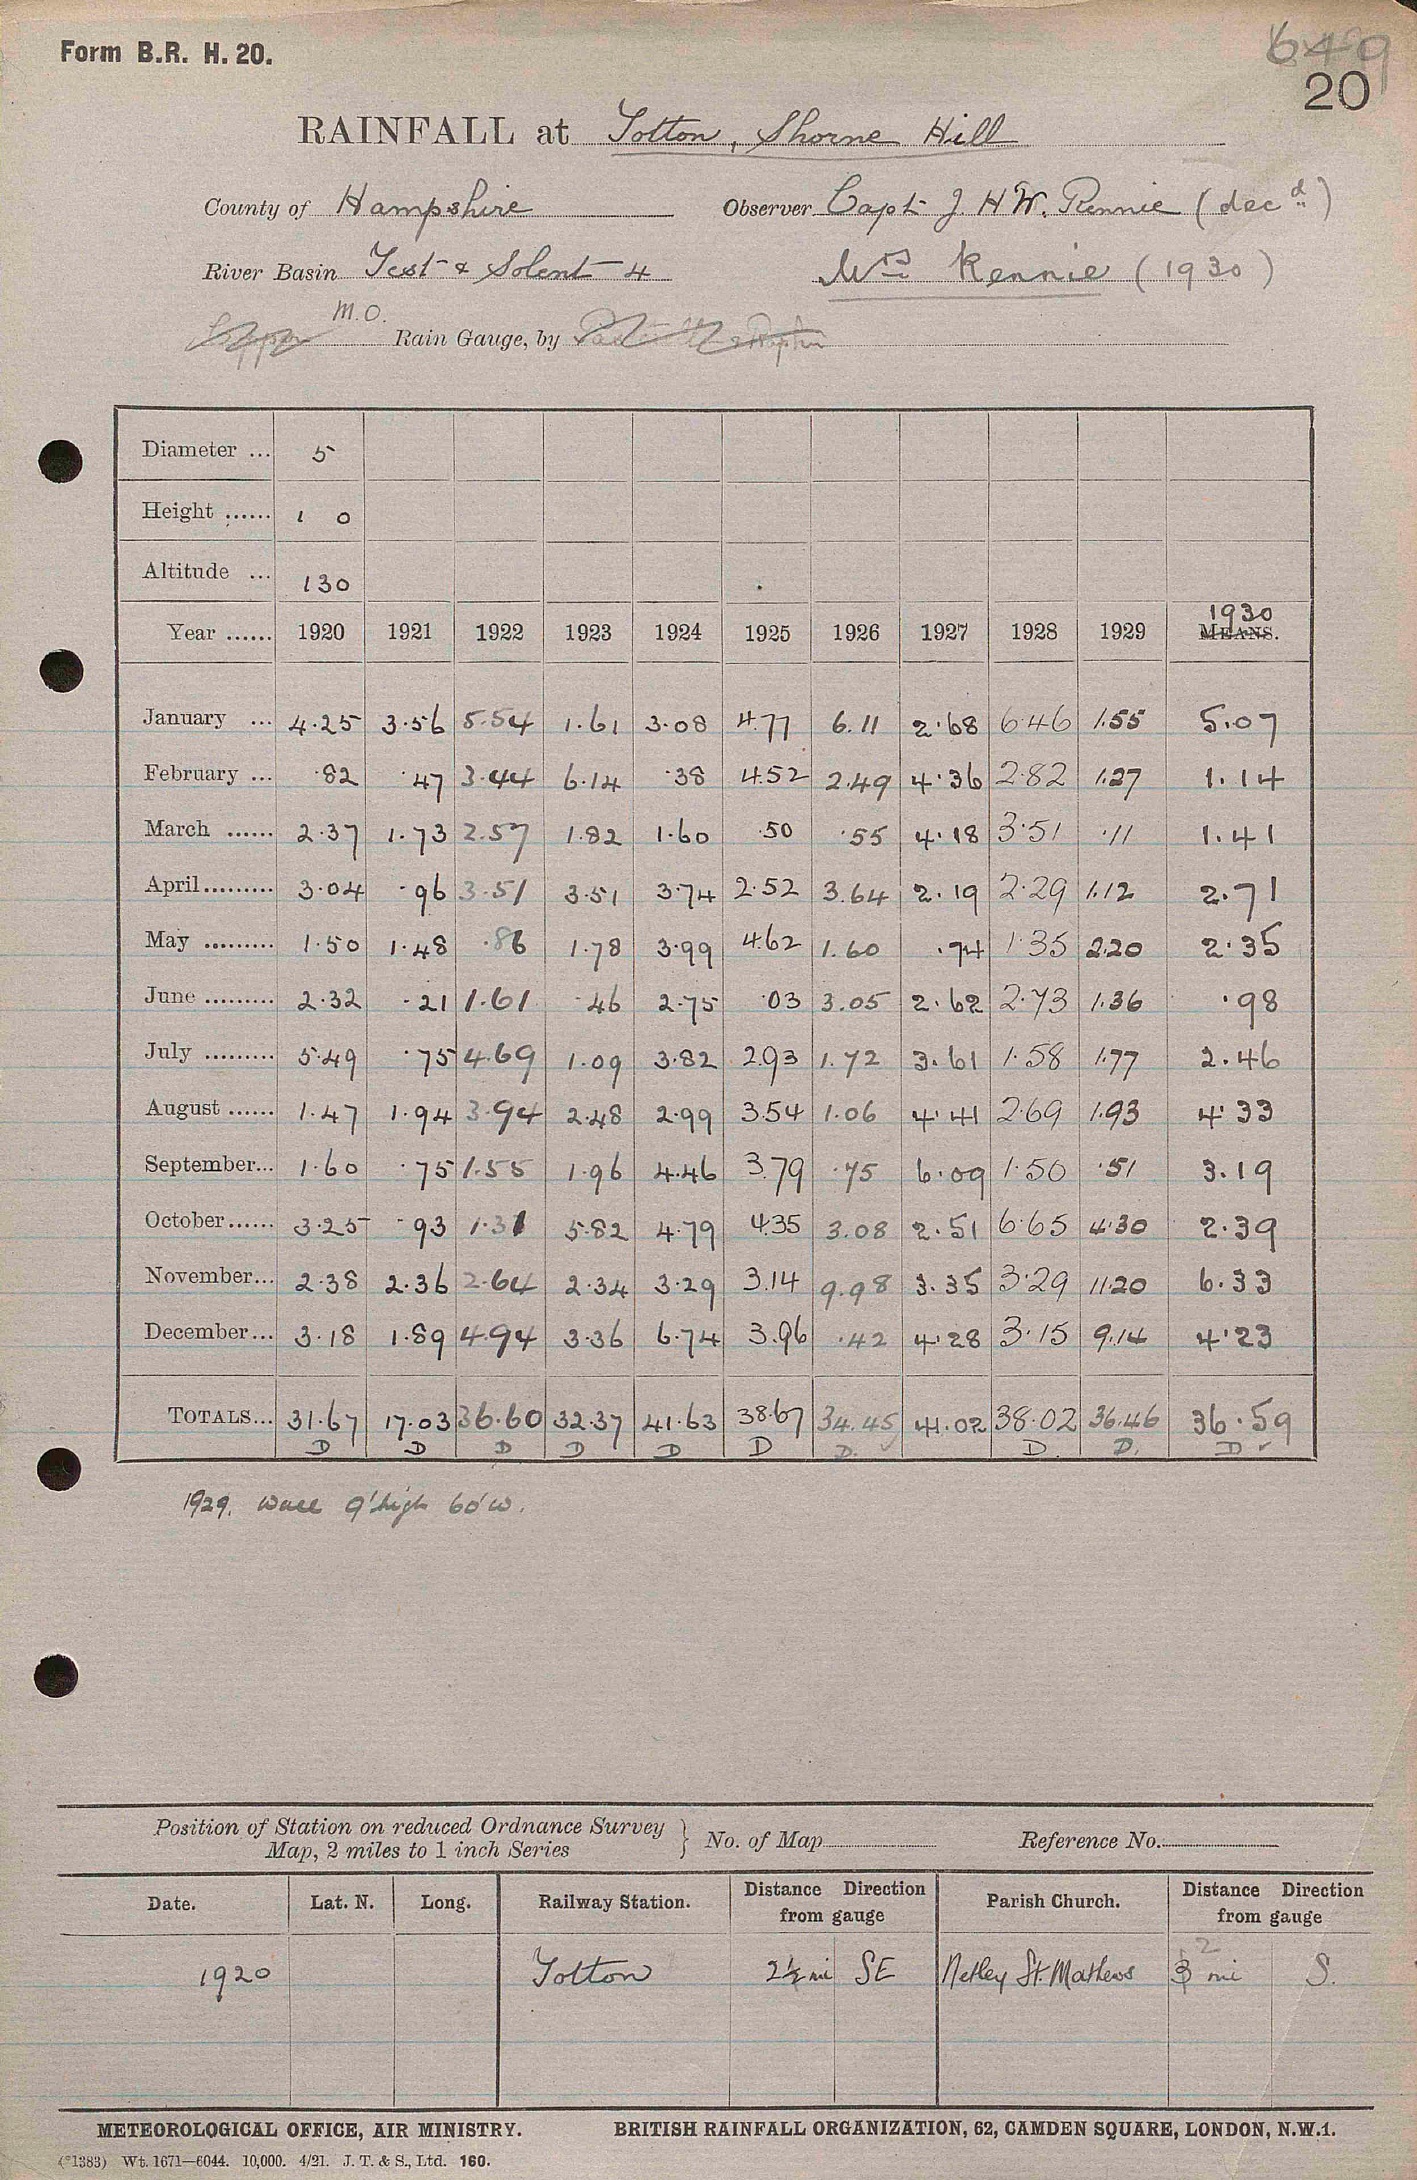 Form B.R. H. 20.
649
20
RAINFALL at Totton, Shorne Hill
County of Hampshire Observer Capt J. H W. Rennie (decd)
River Basin Test & Solent 4 Mrs Rennie (1930)
M.O.
Rain Gauge, by
Diameter ... 5
Height ...... 1 0
Altitude ... 130
1930
Year ...... 1920 1921 1922 1923 1924 1925 1926 1927 1928 1929 MEANS.
January ... 4.25 3.56 5.54 1.61 3.08 4.77 6.11 2.68 6.46 1.55 5.07
February ... .82 .47 3.44 6.14 .38 4.52 2.49 4.36 2.82 1.27 1.14
March ...... 2.37 1.73 2.57 1.82 1.60 .50 .55 4.18 3.51 .11 1.41
April......... 3.04 .96 3.51 3.51 3.74 2.52 3.64 2.19 2.29 1.12 2.71
May ......... 1.50 1.48 .86 1.78 3.99 4.62 1.60 .74 1.35 2.20 2.35
June ......... 2.32 .21 1.61 .46 2.75 .03 3.05 2.62 2.73 1.36 .98
July ......... 5.49 .75 4.69 1.09 3.82 2.93 1.72 3.61 1.58 1.77 2.46
August ...... 1.47 1.94 3.94 2.48 2.99 3.54 1.06 4.41 2.69 1.93 4.33
September... 1.60 .75 1.55 1.96 4.46 3.79 .75 6.09 1.50 .51 3.19
October...... 3.25 .93 1.31 5.82 4.79 4.35 3.08 2.51 6.65 4.30 2.39
November... 2.38 2.36 2.64 2.34 3.29 3.14 9.98 3.35 3.29 11.20 6.33
December... 3.18 1.89 4.94 3.36 6.74 3.96 .42 4.28 3.15 9.14 4.23
TOTALS... 31.67 17.03 36.60 32.37 41.63 38.67 34.45 41.02 38.02 36.46 36.59
D D D D D D D. D. D. D ✓
1929. Wall 9' high 60' w.
Position of Station on reduced Ordnance Survey
Map, 2 miles to 1 inch Series } No. of Map Reference No.
Date. Lat. N. Long. Railway Station. Distance Direction from gauge Parish Church. Distance Direction from gauge
2
1920 Totton 2½ mi SE Netley St. Mathews 3 mi S.
METEOROLOGICAL OFFICE, AIR MINISTRY. BRITISH RAINFALL ORGANIZATION, 62, CAMDEN SQUARE, LONDON, N.W.1.
(*1383) Wt. 1671—6044. 10,000. 4/21. J. T. & S., Ltd. 160.